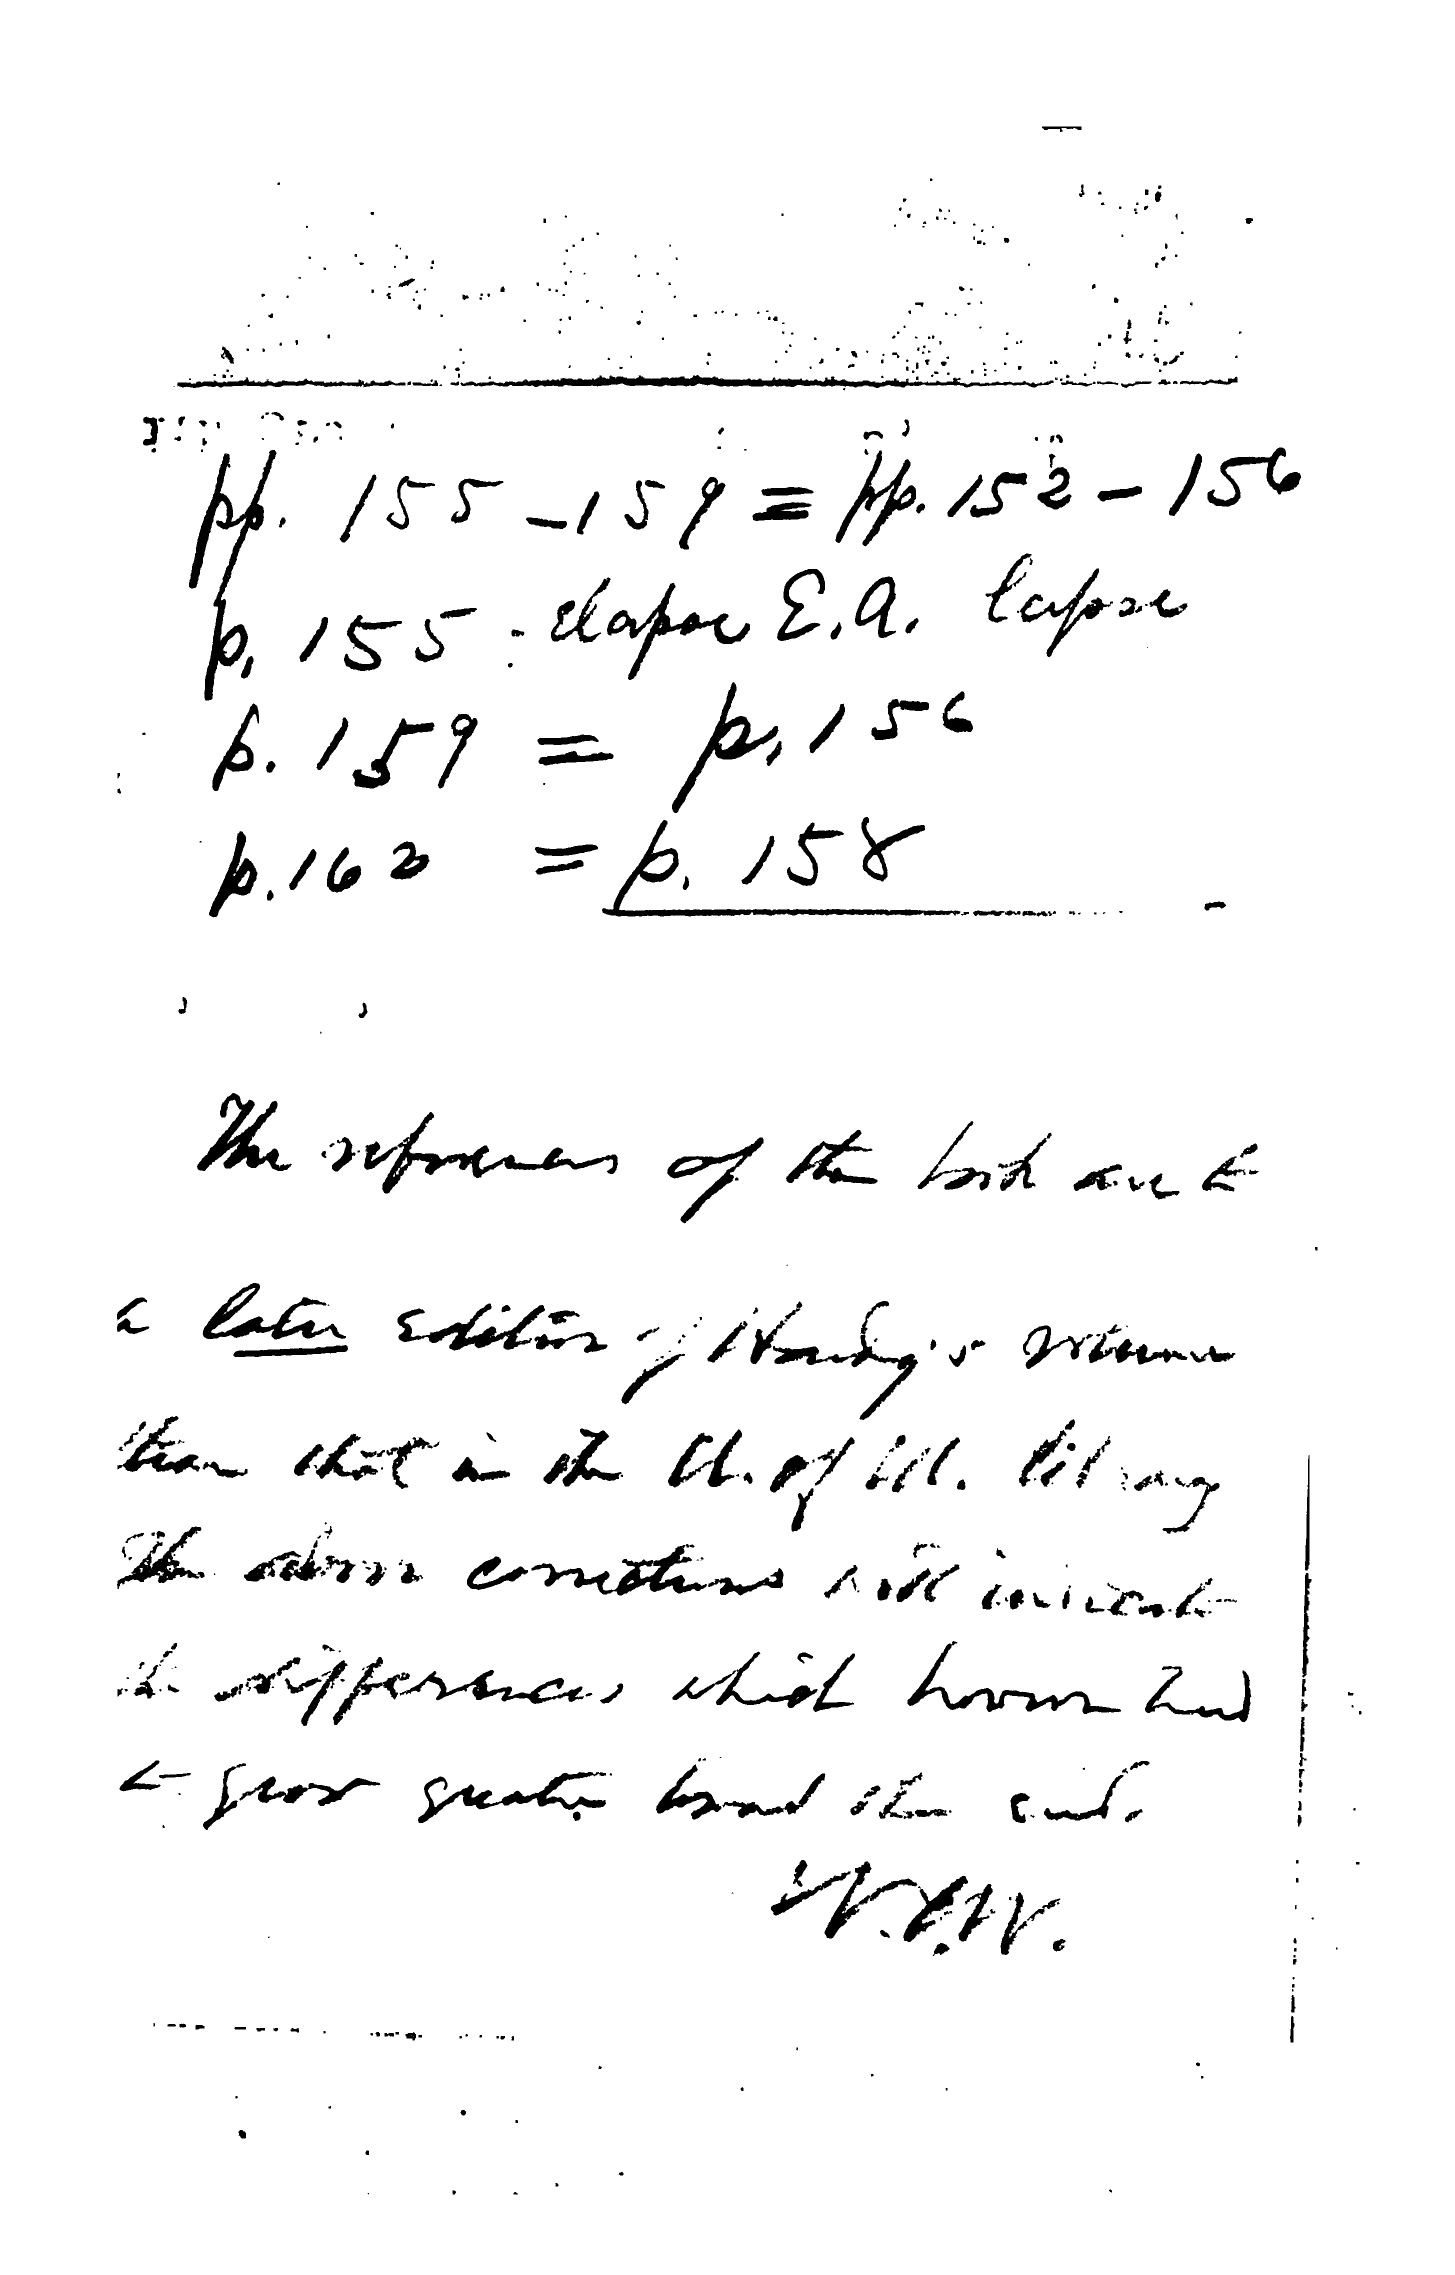 pp. 155-159 = pp. 152-156
p. 155 - elapse E.A. lapse
p. 159 = p. 156
p. 162 = p. 158
The references of the book are to
a later edition of Hardy's volume
than that in the U. of M. library
The above corrections will indicate
the differences which however tend
to grow greater toward the end.
W.